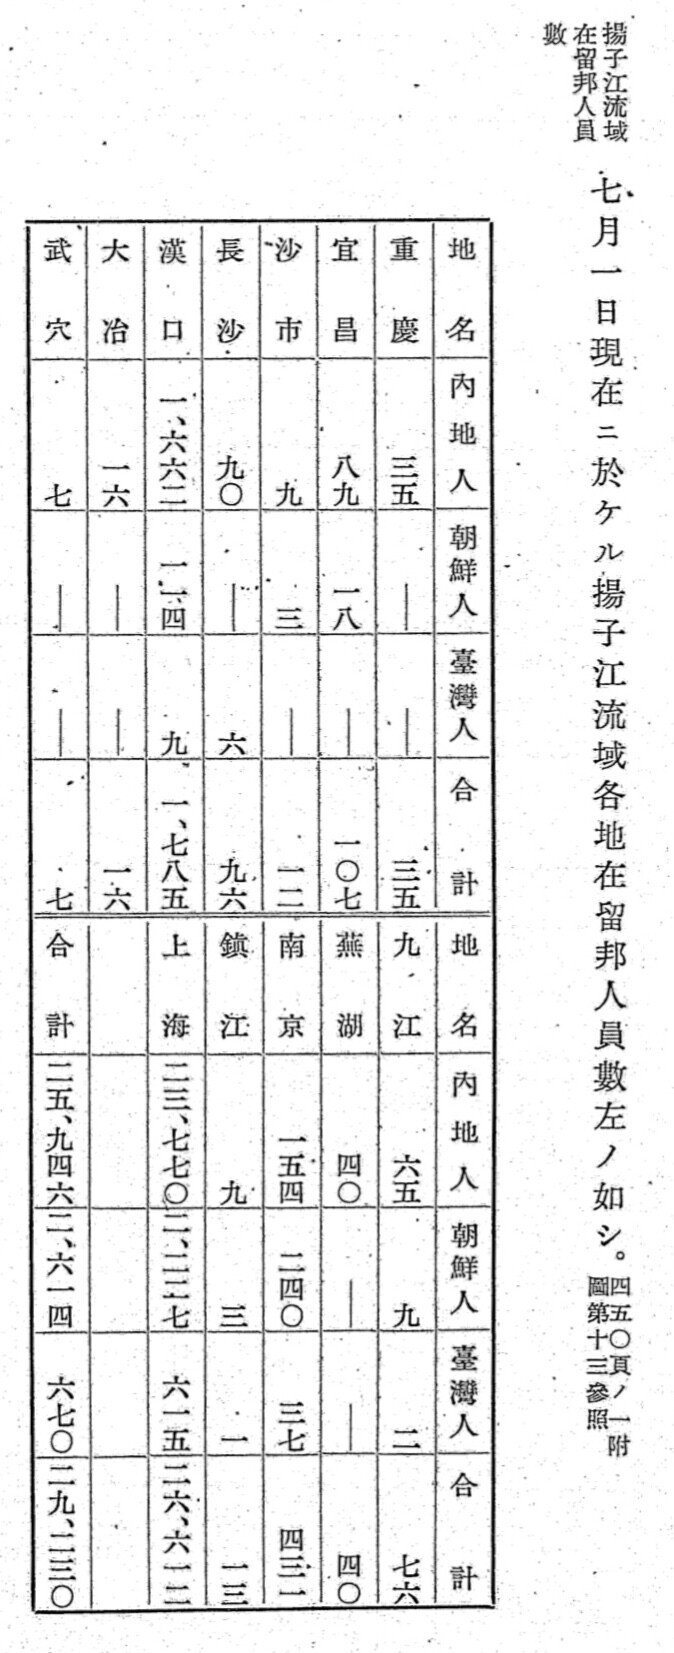 揚子江流域
在留邦人員
數
七月一日現在ニ於ケル揚子江流域各地在留邦人員數左ノ如シ。
四五〇頁ノ一附
圖第十三參照
地名 內地人 朝鮮人 臺灣人 合計
重慶 三五 — — 三五
宜昌 八九 一八 — 一〇七
沙市 九 三 — 一二
長沙 九〇 — 六 九六
漢口 一、六六二 一一四 九 一、七八五
大冶 一六 — — 一六
武穴 七 — — 七
地名 內地人 朝鮮人 臺灣人 合計
九江 六五 九 二 七六
蕪湖 四〇 — — 四〇
南京 一五四 二四〇 三七 四三一
鎮江 九 三 一 一三
上海 二三、七七〇 二、二二七 六一五 二六、六一二
合計 二五、九四六 二、六一四 六七〇 二九、二三〇